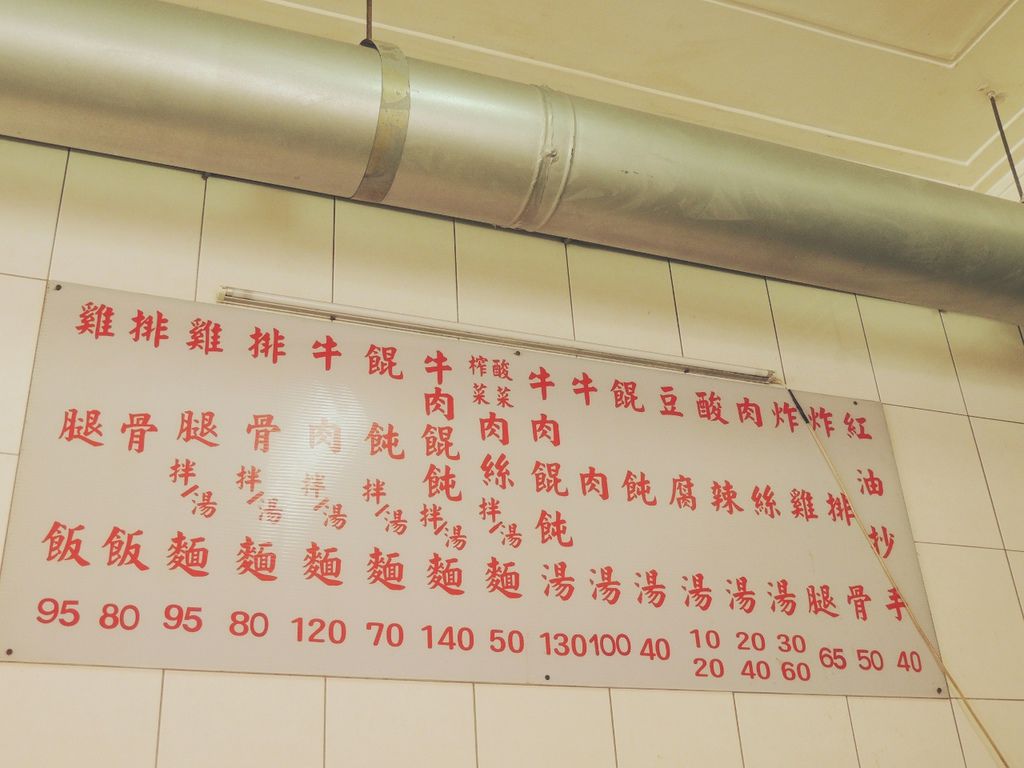 雞腿飯 95
排骨飯 80
雞腿拌/湯麵 95
排骨拌/湯麵 80
牛肉拌/湯麵 120
餛飩拌/湯麵 70
牛肉餛飩拌/湯麵 140
榨菜酸菜肉絲拌/湯麵 50
牛肉餛飩湯 130
牛肉湯 100
餛飩湯 40
豆腐湯 10 20
酸辣湯 20 40
肉絲湯 30 60
炸雞腿 65
炸排骨 50
紅油抄手 40